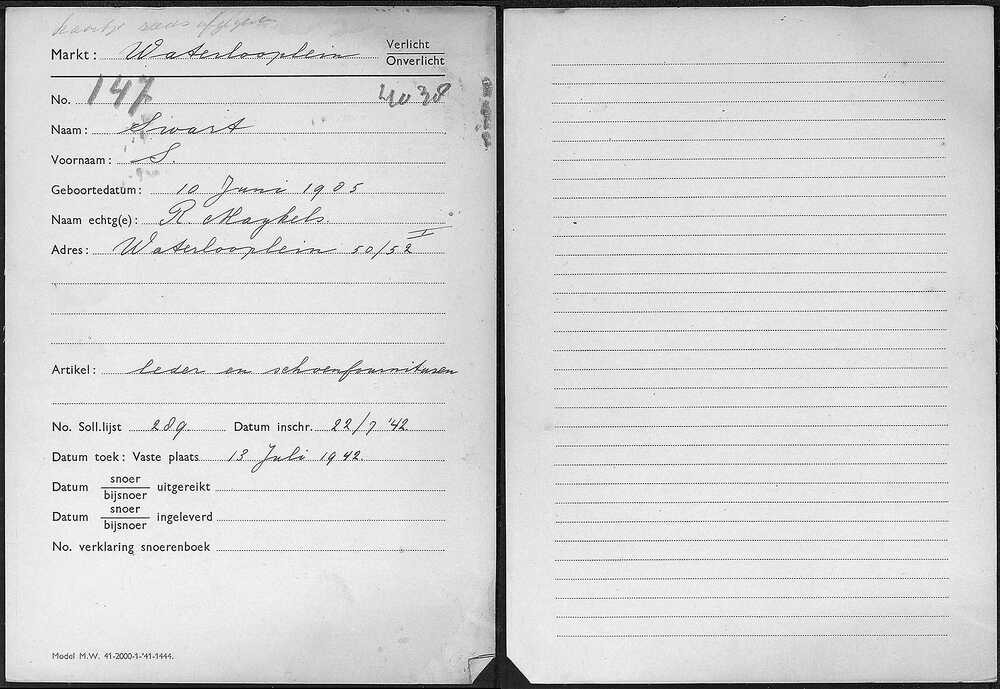 kaartje reeds afgegeven
Markt: Waterlooplein Verlicht
Onverlicht
No. 147 4038
Naam: Swart
Voornaam: S.
Geboortedatum: 10 Juni 1905
Naam echtg(e): R Maykels
Adres: Waterlooplein 50/52 I
Artikel: leder en schoenfournituren
No. Soll.lijst 289. Datum inschr. 22/7 '42
Datum toek: Vaste plaats 13 Juli 1942.
Datum snoer
bijsnoer uitgereikt
Datum snoer
bijsnoer ingeleverd
No. verklaring snoerenboek
Model M.W. 41-2000-1-'41-1444.